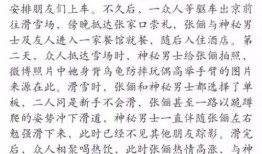 安排朋友们上车。不久后，一众人等驱车出京前
往滑雪场，傍晚抵达张家口崇礼，张俪与神秘男
士及友人进入一家餐馆就餐，随后入住酒店。第
二天，众人抵达雪场时，神秘男士给张俪拍照，
微博照片中她身背乌龟防摔玩偶高举手臂的图片
来源在此。滑雪时，张俪和神秘男士都选择了单
板，二人同是新手不会滑，张俪甚至一路以跪蹲
爬的姿势冲下滑道，神秘男士一直伴随张俪左右
勉强滑下来，此时已经不见其他朋友踪影。滑完
后，众人相聚喝热饮，此时张俪热情高涨，与神